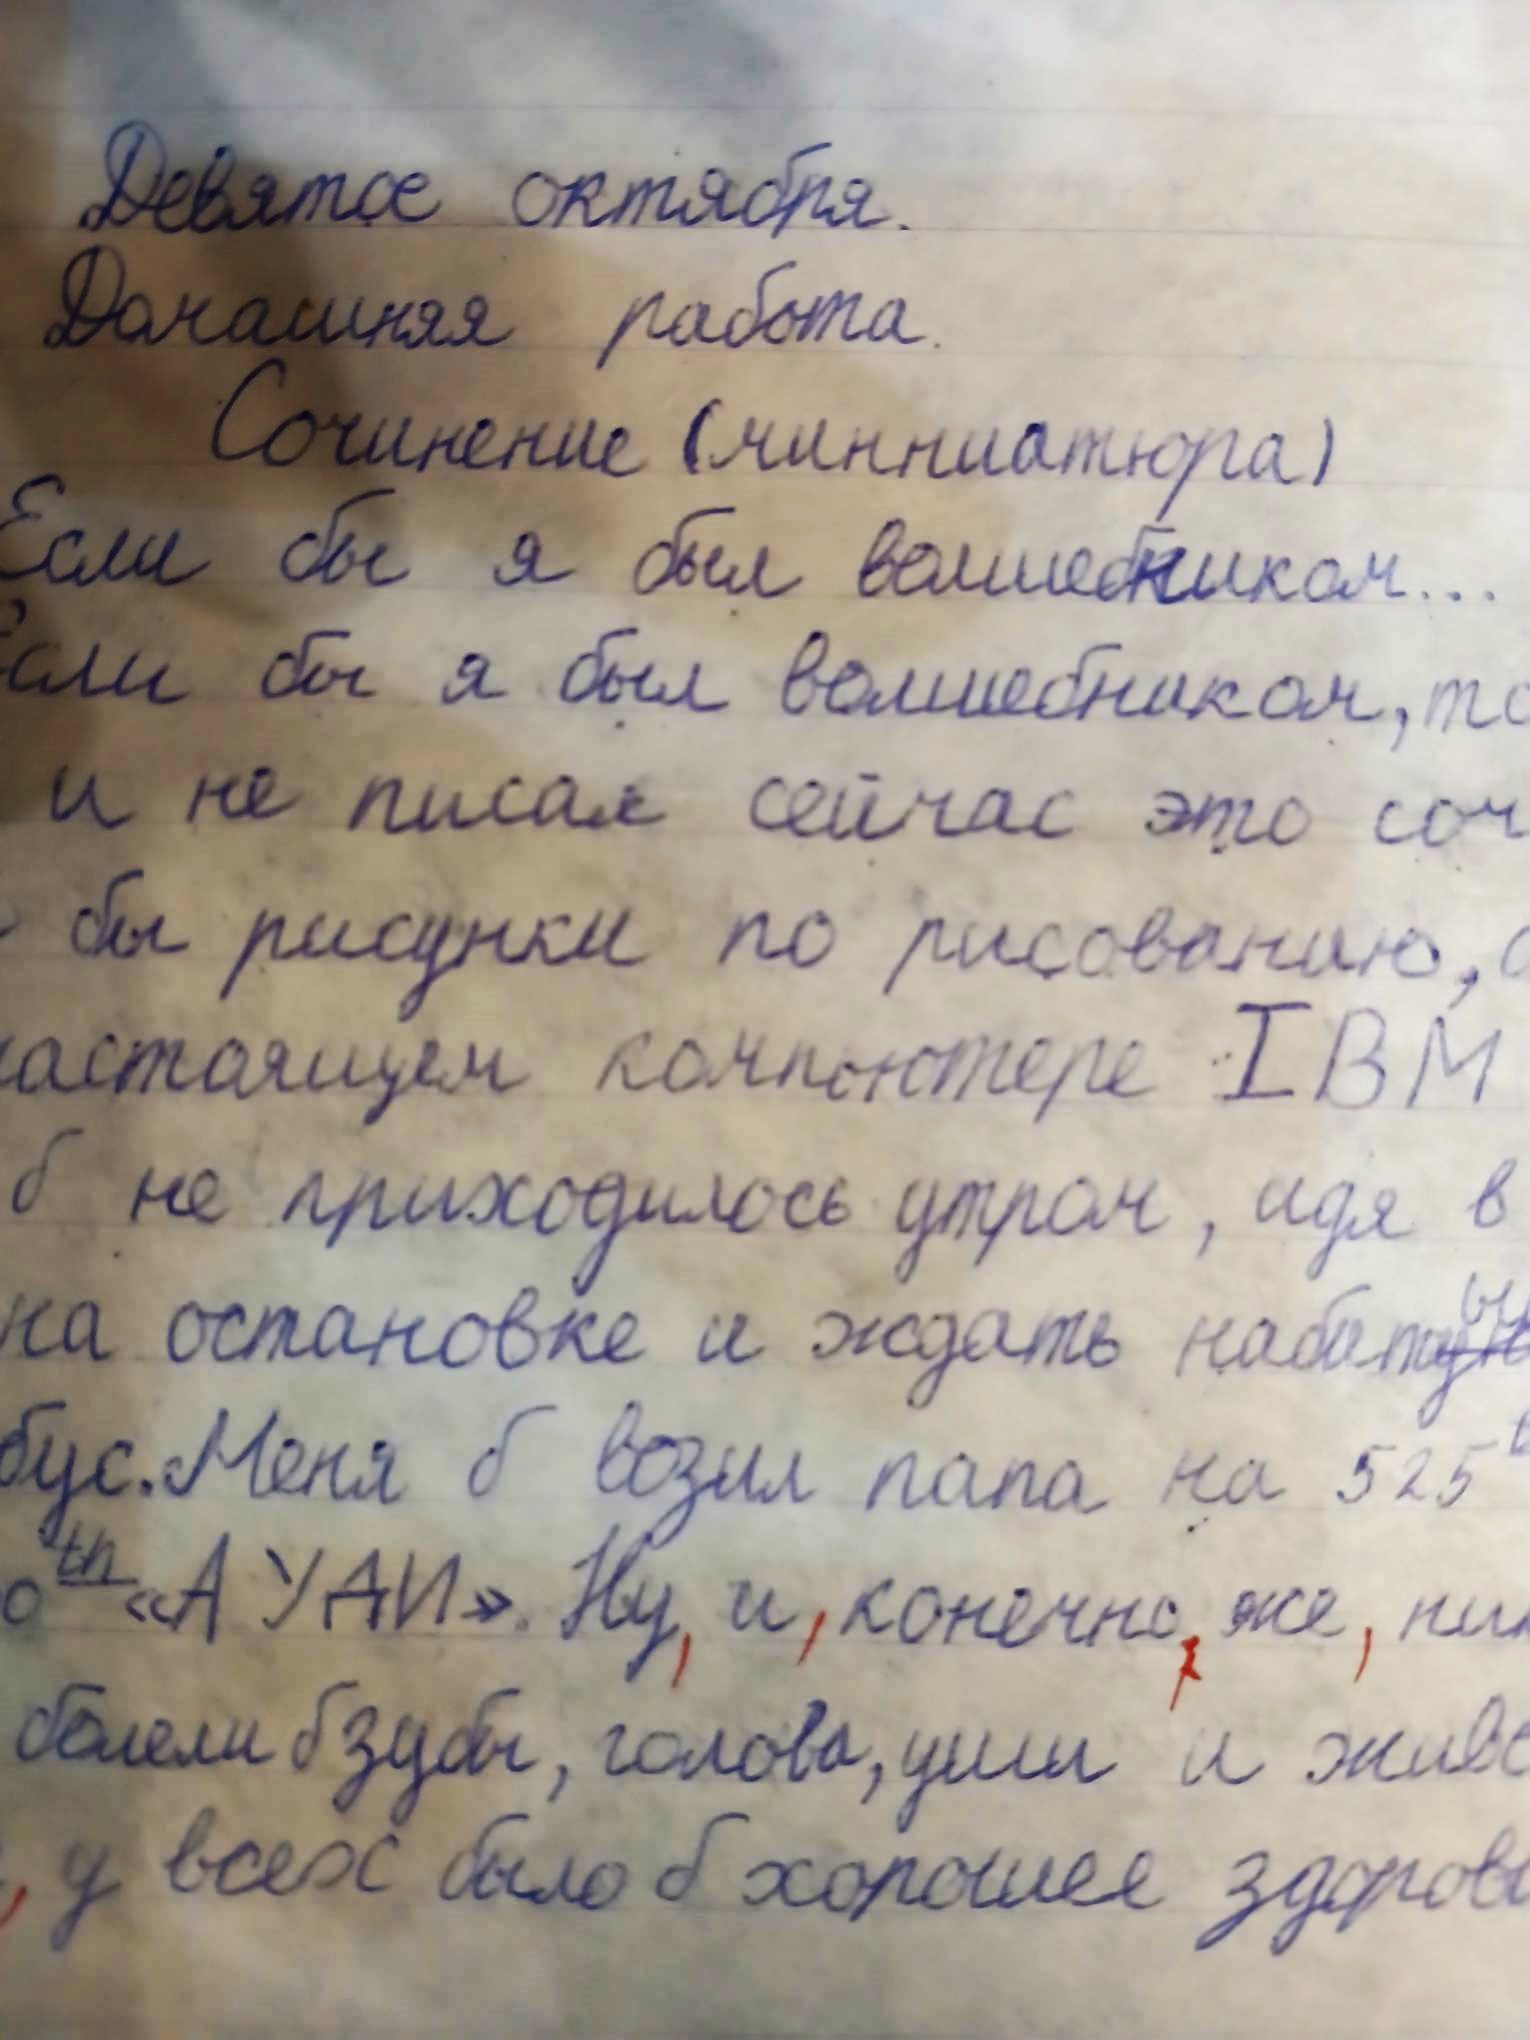 Девятое октября.
Домашняя работа.
Сочинение (минниатюра)
Если бы я был волшебником...
Если бы я был волшебником, то
и не писал сейчас это соч
бы рисунки по рисованию,
настоящем компьютере IBM
б не приходилось утром, идя в
на остановке и ждать
бус. Меня б возил папа на 525
«АУДИ». Ну, и, конечно, же,
болели б зубы, голова, уши и живо
, у всех было б хорошее здоровь